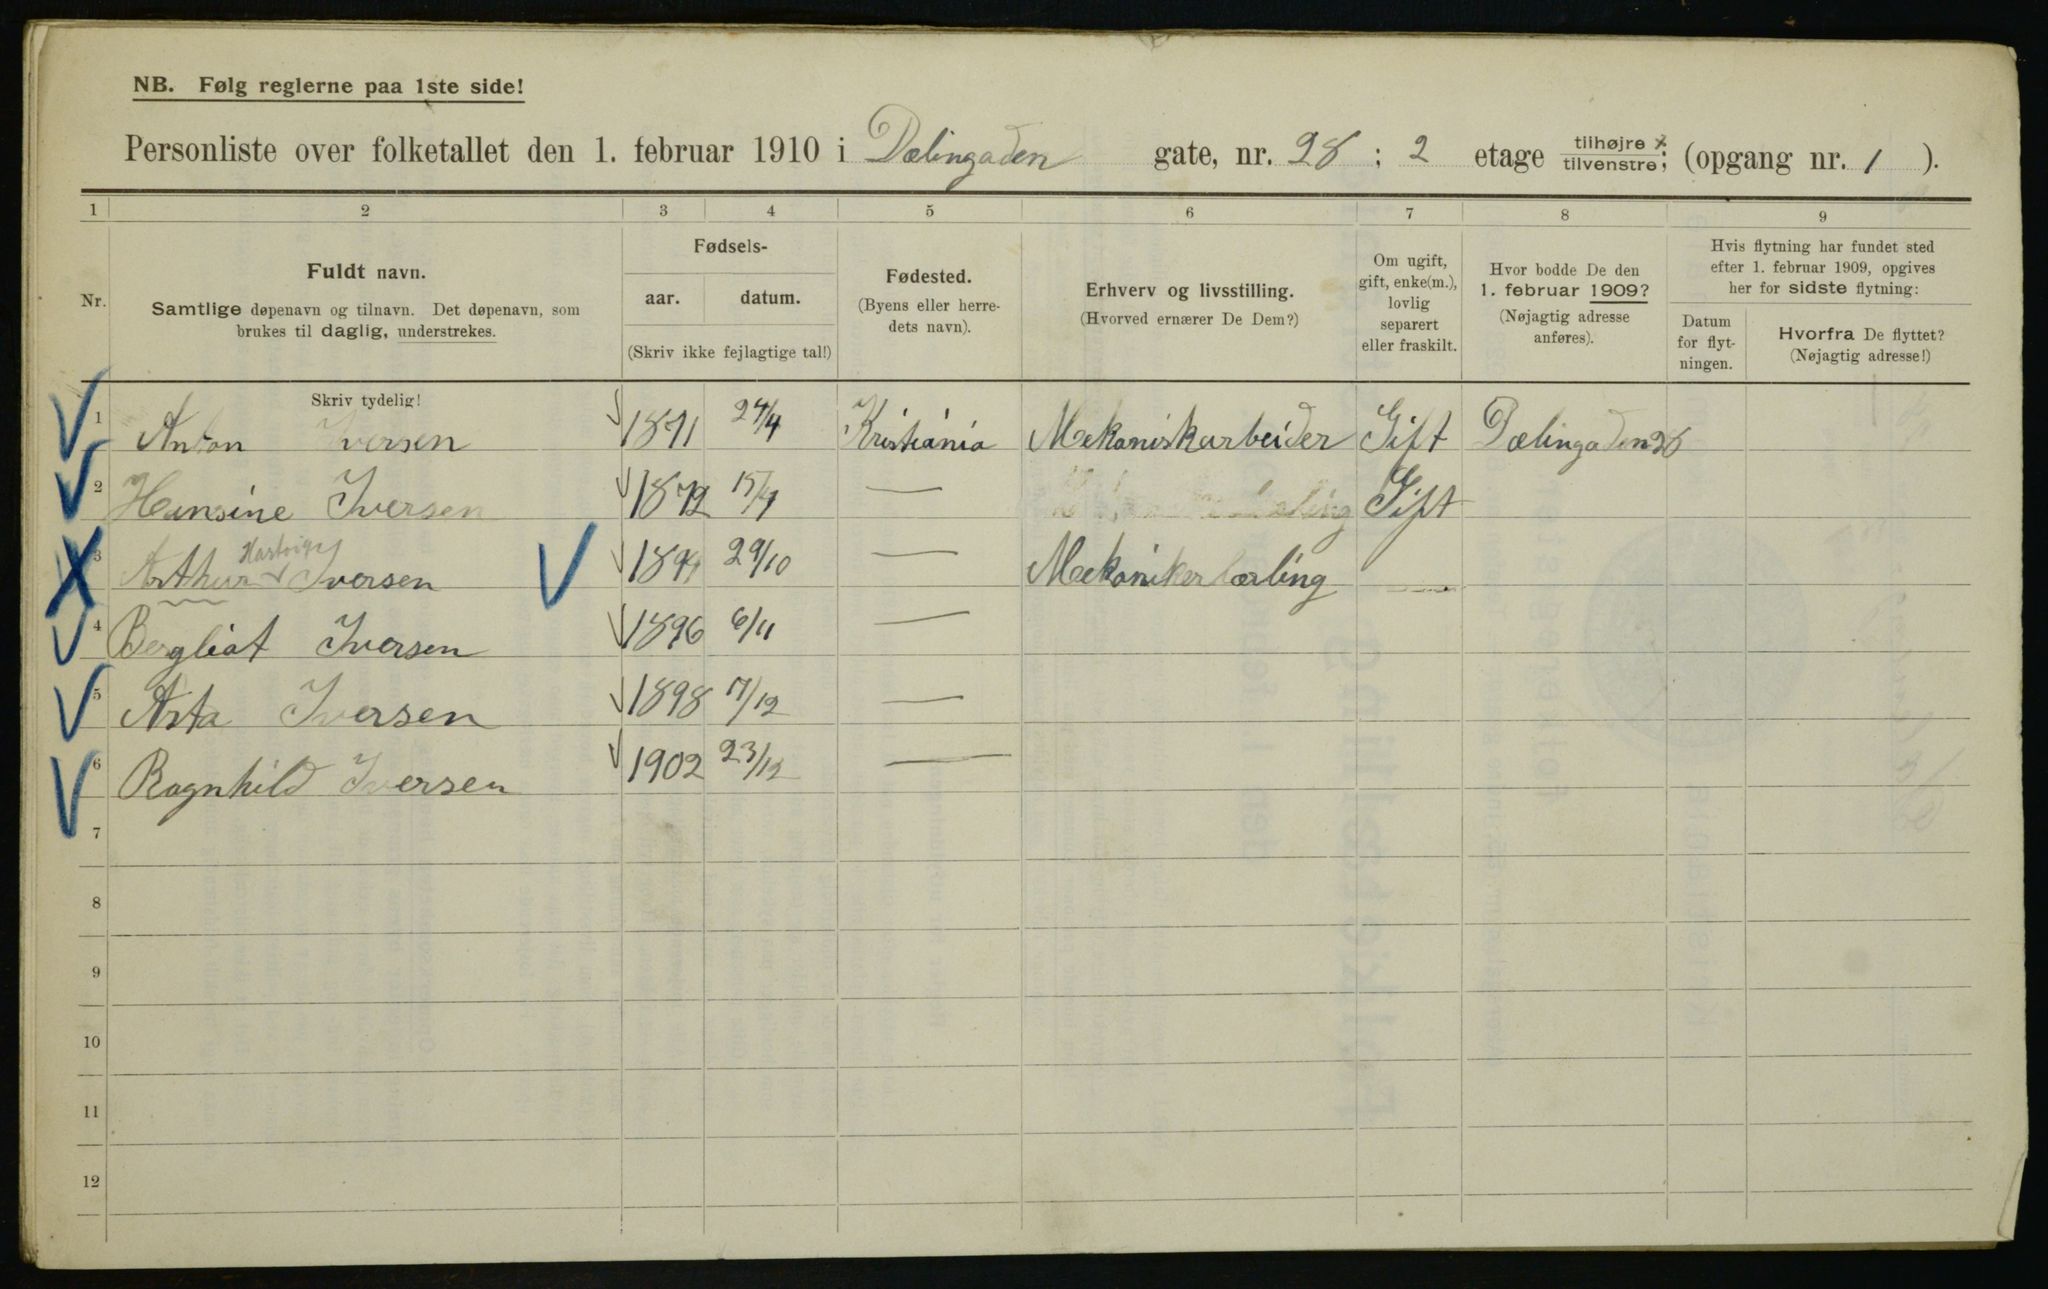 NB. Følg reglerne paa 1ste side!
Personliste over folketallet den 1. februar 1910 i Dælingaden gate, nr. 28 ; 2 etage tilhøjre x tilvenstre; (opgang nr. 1 ).
1 2 3 4 5 6 7 8 9
Nr.
Fuldt navn.
Samtlige døpenavn og tilnavn. Det døpenavn, som
brukes til daglig, understrekes.
Fødsels-
aar. datum.
(Skriv ikke fejlagtige tal!)
Fødested.
(Byens eller herre-
dets navn).
Erhverv og livsstilling.
(Hvorved ernærer De Dem?)
Om ugift,
gift, enke(m.),
lovlig
separert
eller fraskilt.
Hvor bodde De den
1. februar 1909?
(Nøjagtig adresse
anføres).
Hvis flytning har fundet sted
efter 1. februar 1909, opgives
her for sidste flytning:
Datum
for flyt-
ningen.
Hvorfra De flyttet?
(Nøjagtig adresse!)
Skriv tydelig!
1 Anton Iversen 1871 24/4 Kristiania Mekaniskarbeider Gift Dælingaden 28
2 Hansine Iversen 1872 — Gift
Hartvig
3 Arthur Iversen 29/10 — Mekanikerlærling —
4 Bergliot Iversen 1896 6/11 —
5 Asta Iversen 1898 7/12 —
6 Ragnhild Iversen 1902 23/12 —
7
8
9
10
11
12